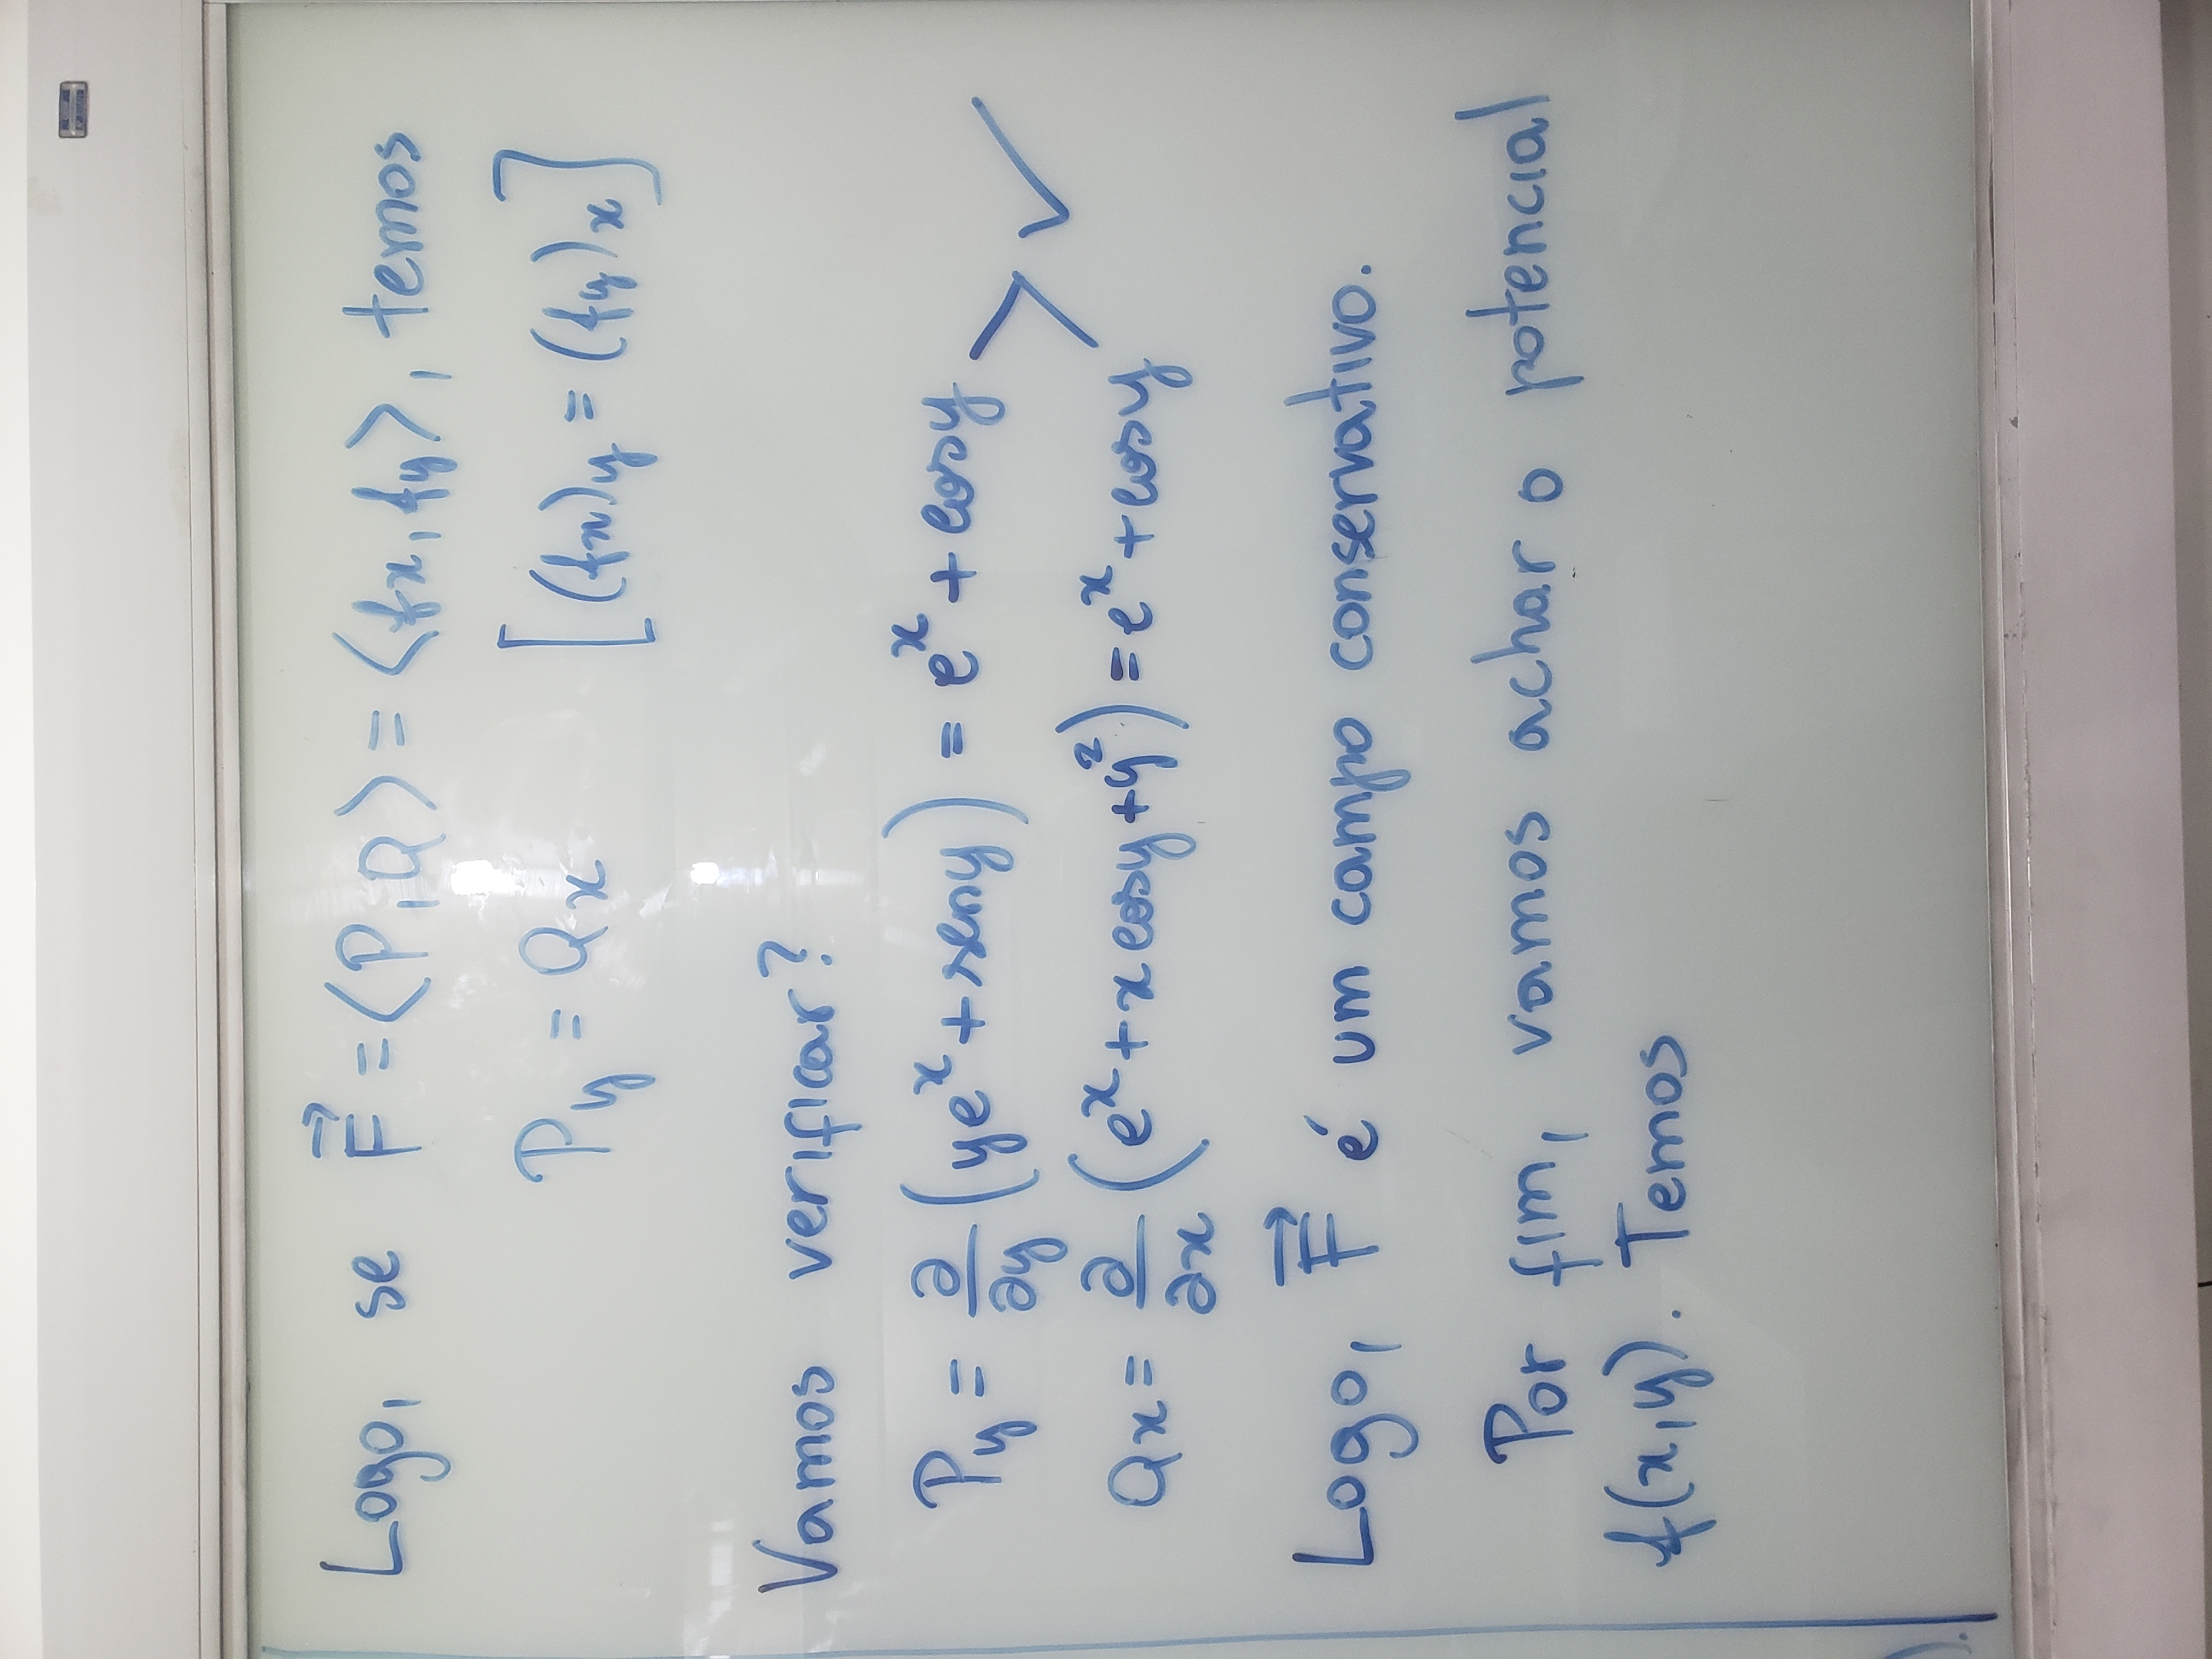 Logo, se F⃗ = ⟨P, Q⟩ = ⟨fx, fy⟩, temos
Py = Qx [(fx)y = (fy)x]
Vamos verificar?
Py = ∂/∂y (ye^x + sen y) = e^x + cos y
Qx = ∂/∂x (e^x + x cos y + y²) = e^x + cos y > ✓
Logo, F⃗ é um campo conservativo.
Por fim, vamos achar o potencial
f(x,y). Temos